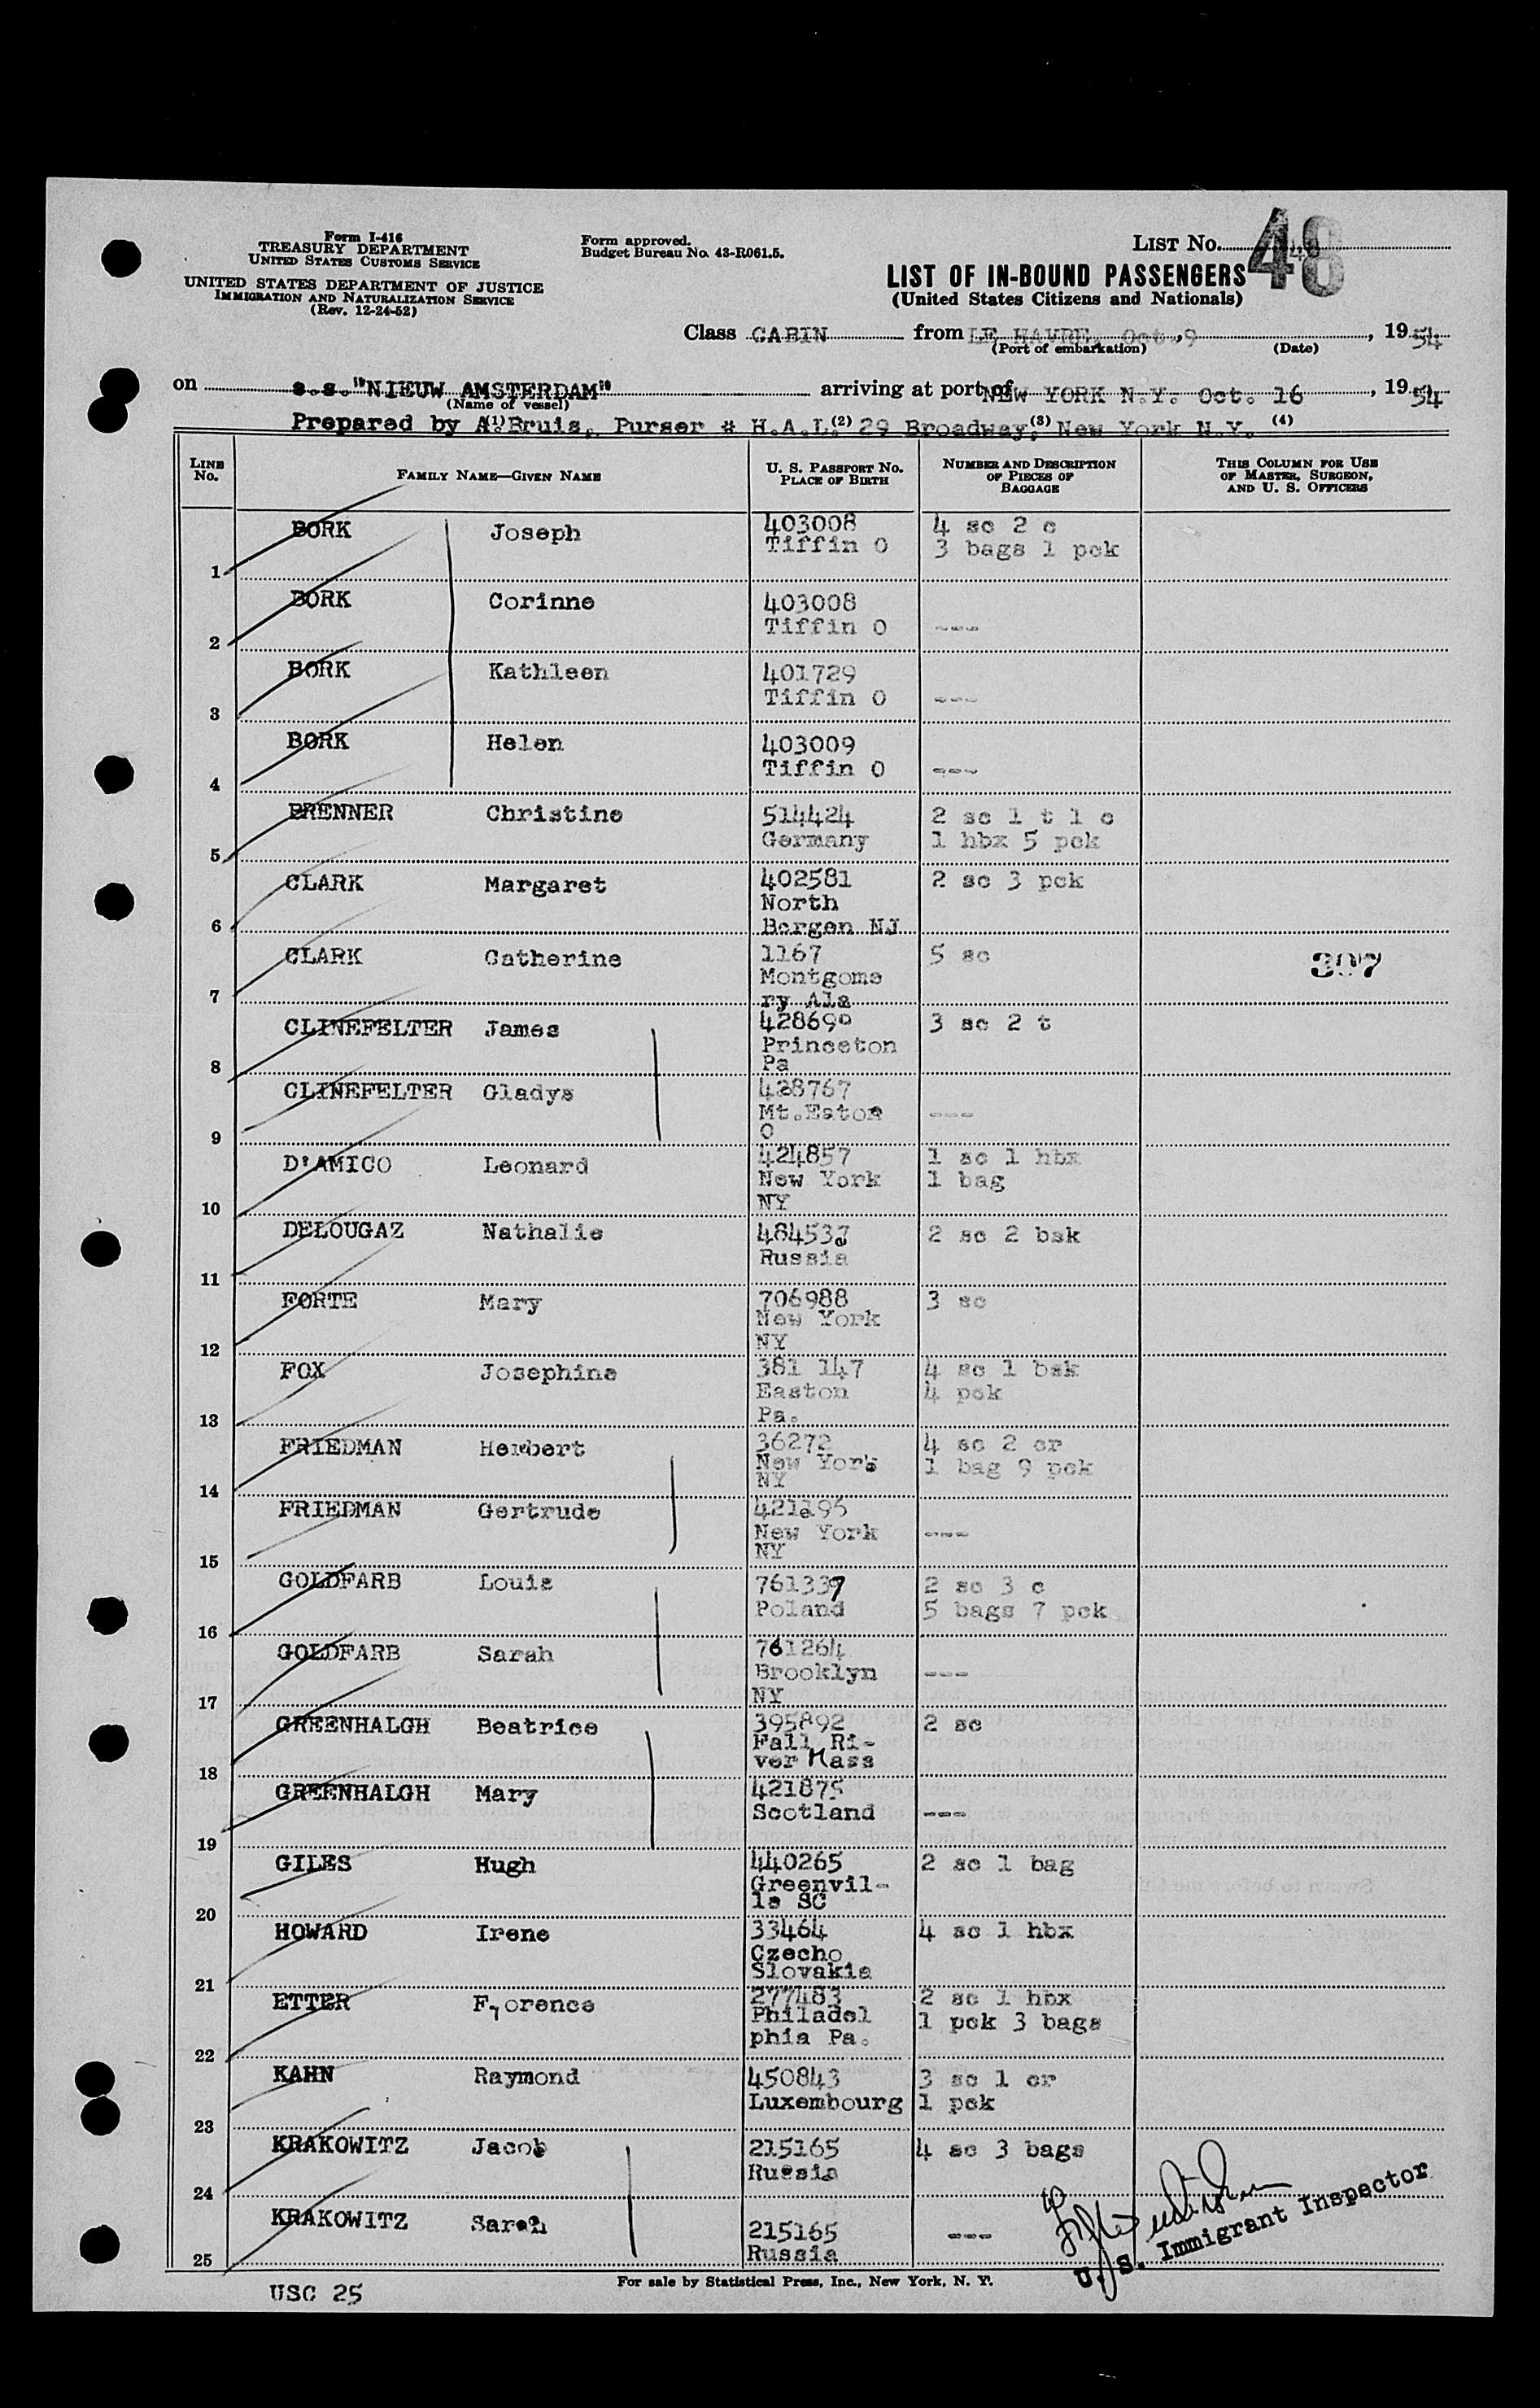 Form I-416
TREASURY DEPARTMENT
UNITED STATES CUSTOMS SERVICE
UNITED STATES DEPARTMENT OF JUSTICE
IMMIGRATION AND NATURALIZATION SERVICE
(Rev. 12-24-52)
Form approved.
Budget Bureau No. 43-R061.5.
LIST No. 48
48
LIST OF IN-BOUND PASSENGERS
(United States Citizens and Nationals)
Class CABIN from LE HAVRE, Oct. 9, 1954
(Port of embarkation) (Date)
on s.s. "NIEUW AMSTERDAM" arriving at port of NEW YORK N.Y. Oct. 16, 1954
(Name of vessel)
Prepared by A. Bruis, Purser # H.A.L. 29 Broadway, New York N.Y.
(1) (2) (3) (4)
LINE No. FAMILY NAME—GIVEN NAME U. S. PASSPORT NO. PLACE OF BIRTH NUMBER AND DESCRIPTION OF PIECES OF BAGGAGE THIS COLUMN FOR USE OF MASTER, SURGEON, AND U. S. OFFICERS
BORK Joseph 403008 4 sc 2 c
Tiffin O 3 bags 1 pck
1
BORK Corinne 403008
Tiffin O ---
2
BORK Kathleen 401729
Tiffin O ---
3
BORK Helen 403009
Tiffin O ---
4
BRENNER Christine 514424 2 sc 1 t 1 c
Germany 1 hbx 5 pck
5
CLARK Margaret 402581 2 sc 3 pck
North
6 Bergen NJ
CLARK Catherine 1167 5 sc 307
Montgome
7 ry Ala
CLINEFELTER James 428690 3 sc 2 t
Princeton
8 Pa
CLINEFELTER Gladys 428767
Mt.Eaton ---
9 O
D'AMICO Leonard 424857 1 sc 1 hbx
New York 1 bag
10 NY
DELOUGAZ Nathalie 484537 2 sc 2 bsk
Russia
11
FORTE Mary 706988 3 sc
New York
12 NY
FOX Josephine 381 147 4 sc 1 bsk
Easton 4 pck
13 Pa.
FRIEDMAN Herbert 36272 4 sc 2 cr
New York 1 bag 9 pck
14 NY
FRIEDMAN Gertrude
New York ---
15 NY
GOLDFARB Louis 761339 2 sc 3 c
Poland 5 bags 7 pck
16
GOLDFARB Sarah 761264
Brooklyn ---
17 NY
GREENHALGH Beatrice 395892 2 sc
Fall Ri-
18 ver Mass
GREENHALGH Mary 421875
Scotland ---
19
GILES Hugh 440265 2 sc 1 bag
Greenvil-
20 le SC
HOWARD Irene 33464 4 sc 1 hbx
Czecho
21 Slovakia
ETTER Florence 277483 2 sc 1 hbx
Philadel 1 pck 3 bags
22 phia Pa.
KAHN Raymond 450843 3 sc 1 cr
Luxembourg 1 pck
23
KRAKOWITZ Jacob 215165 4 sc 3 bags
Russia
24
KRAKOWITZ Sarah 215165 ---
25 Russia
U. S. Immigrant Inspector
For sale by Statistical Press, Inc., New York, N. Y.
USC 25